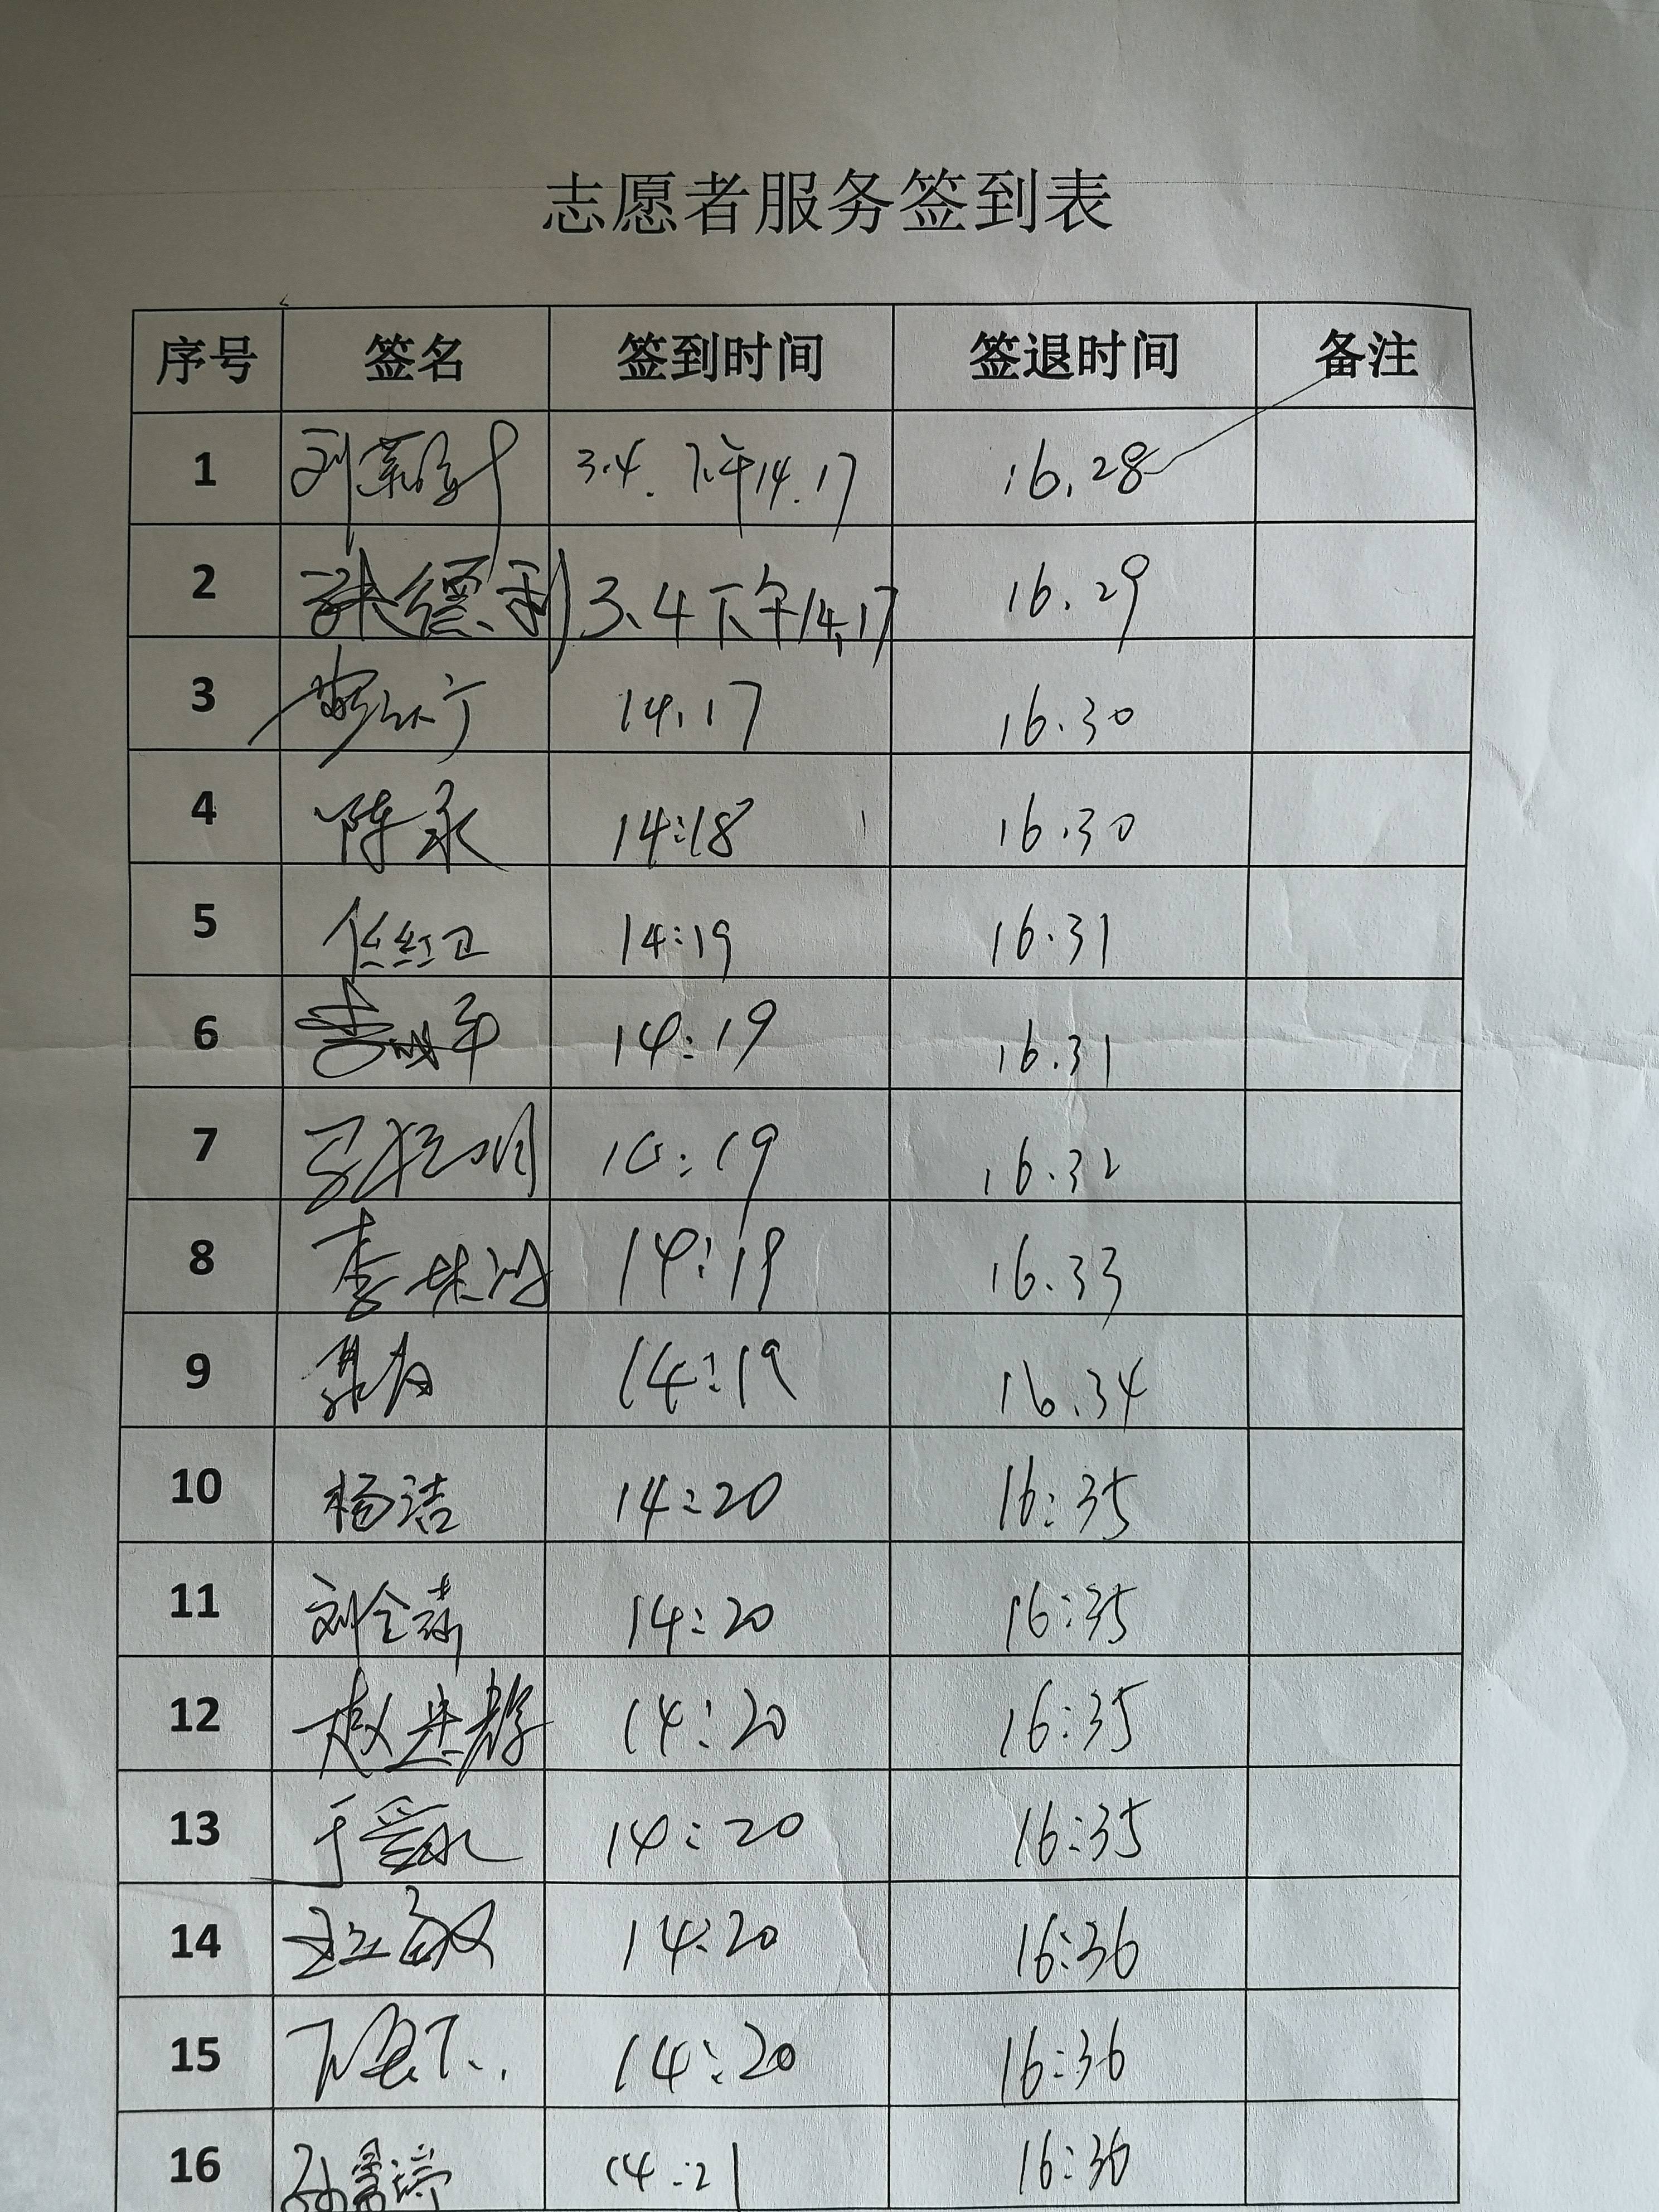 志愿者服务签到表
序号 签名 签到时间 签退时间 备注
1 刘 3.4. 下午14.17 16.28
2 张德利 3.4下午14.17 16.29
3 14.17 16.30
4 陈永 14:18 16.30
5 任红卫 14:19 16.31
6 李 平 14:19 16.31
7 明 14:19 16.32
8 李 14:19 16.33
9 14:19 16.34
10 杨洁 14:20 16:35
11 刘 14:20 16:35
12 赵 14:20 16:35
13 于爱 14:20 16:35
14 14:20 16:36
15 14:20 16:36
16 孙 14:21 16:36